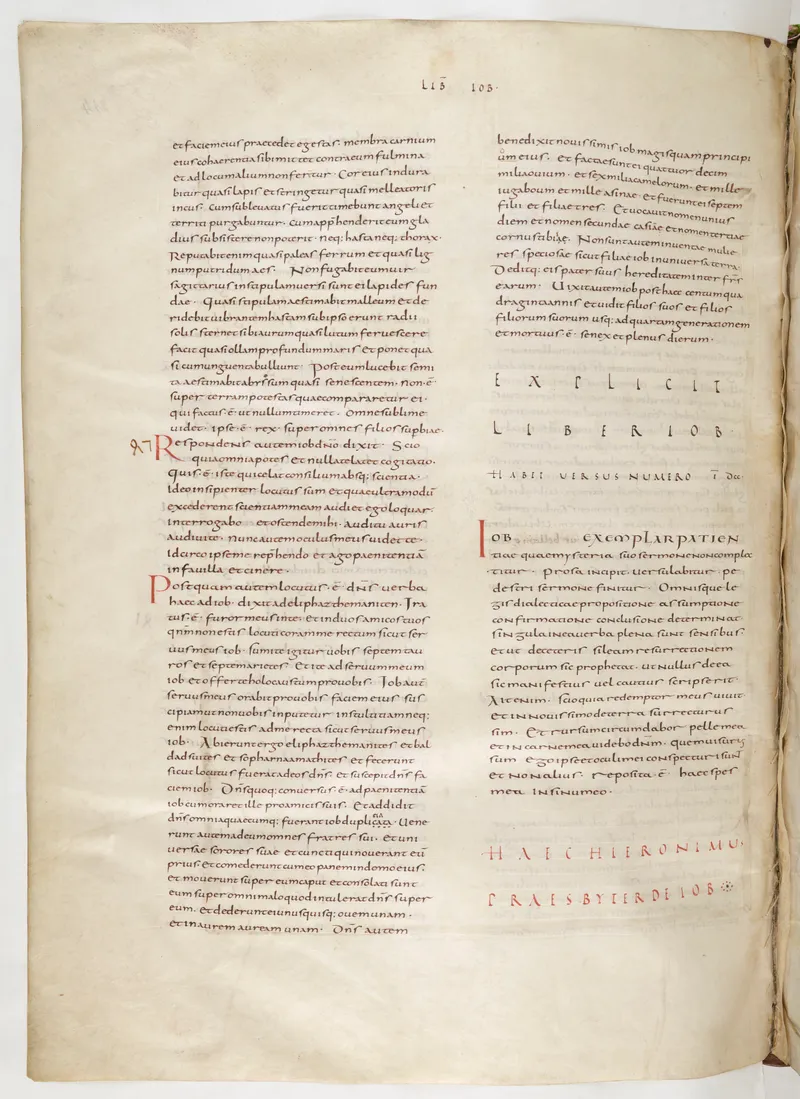 LIB IOB·
et faciem eius praecedet egestas. membra carnium
eius cohaerentia sibi mittet contra eum fulmina
et ad locum alium non fertur· Cor eius indura
bitur quasi lapis et stringetur quasi malleatoris
incus· Cum sublevatus fuerit timebunt angeli et
territi purgabuntur· cum apphenderit eum gla
dius subsistere non poterit· neq; hasta neq; thorax·
Reputabit enim quasi paleas ferrum et quasi lig
num putridum aes· Non fugabit eum uir
sagitarius in stipulam uersi sunt ei lapides fun
dae· Quasi stipulam aestimabit malleum et de
ridebit uibrantem hastam sub ipso erunt radii
solis sternet sibi aurum quasi lutum feruescere
faciet quasi ollam profundum maris et ponet qua
si cum unguenta bulliunt· Post eum lucebit semi
ta aestimabit abyssum quasi senescentem· non ē
super terram potestas quae comparetur ei·
qui factus ē ut nullum timeret· Omne sublime
uidet· ipse ē rex· super omnes filios supbiae·
Respondens autem iob dno dixit· Scio
quia omnia potes et nulla te latet cogitatio·
Quis ē iste qui celat consilium absq; scientia·
Ideo insipienter locutus sum et quae ultra modū
excederent scientiam meam audi et ego loquar·
interrogabo et ostende mihi· Auditu auris
audiui te· nunc autem oculus meus uidet te·
idcirco ipse me rephendo et ago paenitentiā
in fauilla et cinere·
Postquam autem locutus ē dns uerba
haec ad iob· dixit ad eliphaz themaniten· Ira
tus ē furor meus in te· et in duos amicos tuos
qnm non estis locuti coram me rectum sicut ser
uus meus iob· sumite igitur uobis septem tau
ros et septem arietes· Et ite ad seruum meum
iob et offerte holocaustum pro uobis· Iob aut
seruus meus orabit pro uobis faciem eius sus
cipiam ut non uobis inputetur in stultitiam neq;
enim locuti estis ad me recta sicut seruus meus
iob· Abierunt ergo eliphaz themanites et bal
dad suites et sophar naamathites et fecerunt
sicut locutus fuerat ad eos dns· et suscepit dns fa
ciem iob· Dns quoq; conuersus ē ad paenitentiā
iob cum oraret ille pro amicis suis· Et addidit
dns omnia quaecumq; fuerant iob duplicia· Uene
runt autem ad eum omnes fratres sui· et uni
uersae sorores suae et cuncti qui nouerant eū
prius et comederunt cum eo panem in domo eius·
et mouerunt super eum caput et consolati sunt
eum super omni malo quod intulerat dns super
eum· et dederunt ei unusquisq; ouem unam·
et inaurem auream unam· Dns autem
benedixit nouissimis iob magis quam principi
um eius· et facta sunt ei quattuor decim
milia ouium· et sex milia camelorum· et mille
iuga boum et mille asinae· et fuerunt ei septem
filii et filiae tres· Et uocauit nomen unius
diem et nomen secundae casiae et nomen tertiae
cornu stibiae· Non sunt autem inuentae mulie
res speciosae sicut filiae iob in uniuersa terra·
Deditq; eis pater suus hereditatem inter frs
earum· Uixit autem iob post haec centum qua
draginta annis et uidit filios suos et filios
filiorum suorum usq; ad quartam generationem
et mortuus ē· senex et plenus dierum·
EXPLICIT
LIBER IOB·
HABET VERSUS NUMERO Ī DCC
IOB EXEMPLAR PATIEN
tiae quae mysteria suo sermone non complec
titur· Prosa incipit uersu labitur· pe
destri sermone finitur· Omnisque le
gis dialecticae propositione assumptione
confirmatione conclusione determinat
Singula in ea uerba plena sunt sensibus
et ut de ceteris sileam resurrectionem
corporum sic prophetat· ut nullus de ea
sic manifestius uel cautius scripserit
Ait enim· Scio quia redemptor meus uiuit
et in nouissimo de terra surrecturus
sim· Et rursum circumdabor pelle mea
et in carne mea uidebo dnm· quem uisurus
sum ego ipse et oculi mei conspecturi sunt
et non alius· reposita ē haec spes
mea in sinu meo·
HAEC HIERONIMUS
PRAESBYTER DE IOB